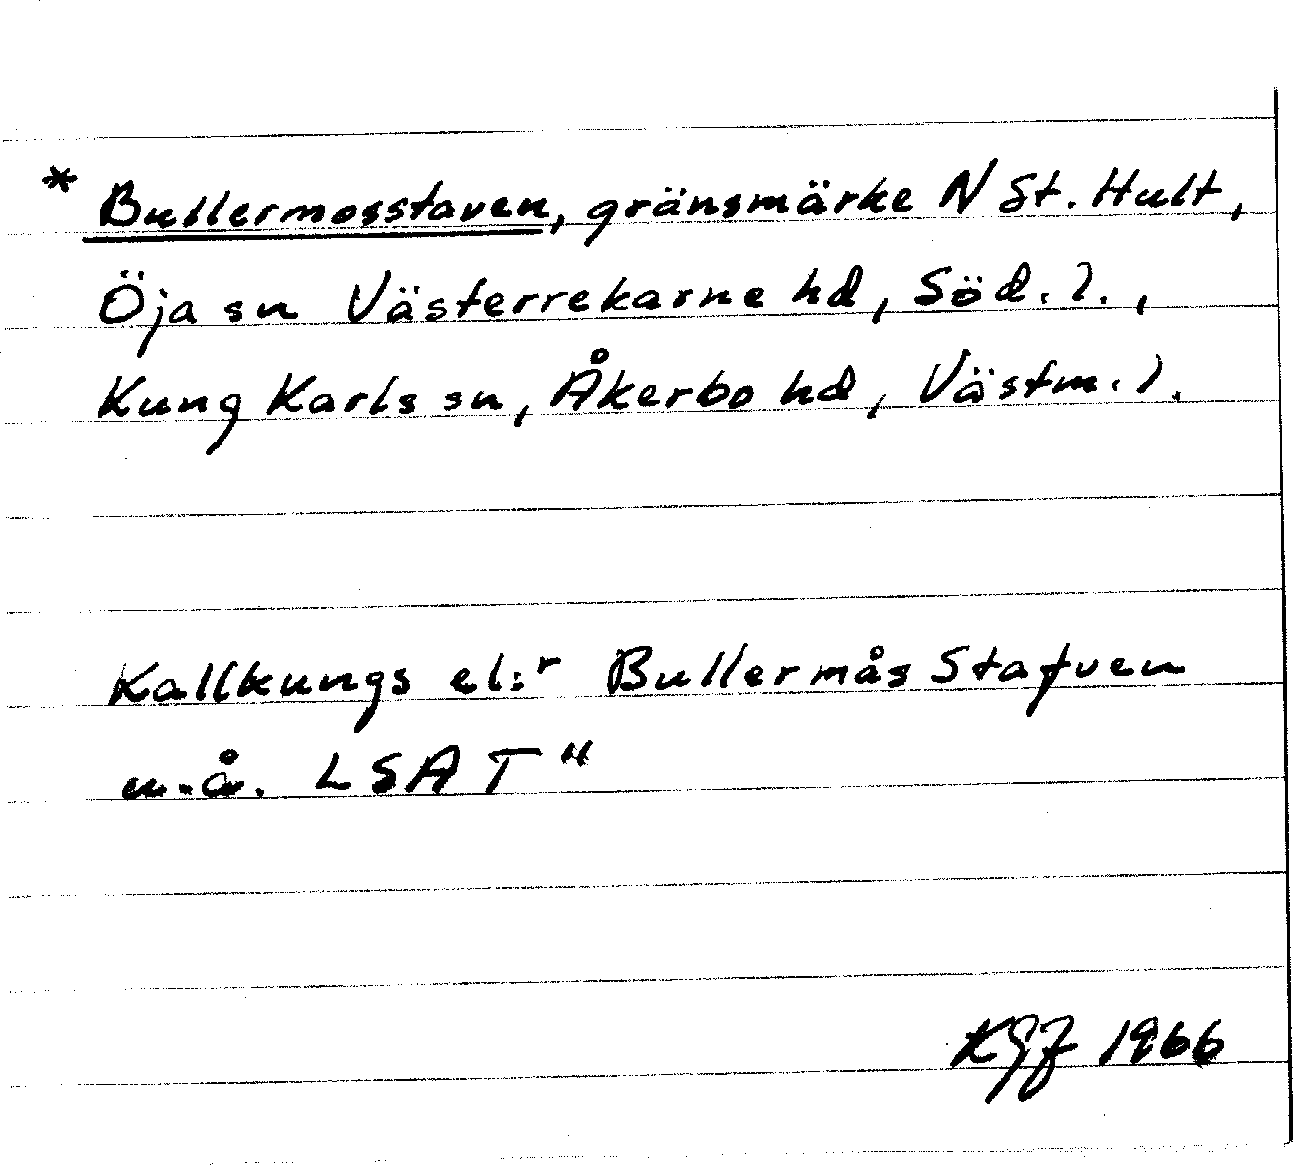 * Bullermosstaven, gränsmärke N St. Hult,
Öja sn Västerrekarne hd, Söd. l.,
Kung Karls sn, Åkerbo hd, Västm. l.
Kallkungs el:r Bullermås Stafven
u.å. LSA T"
KGJ 1966